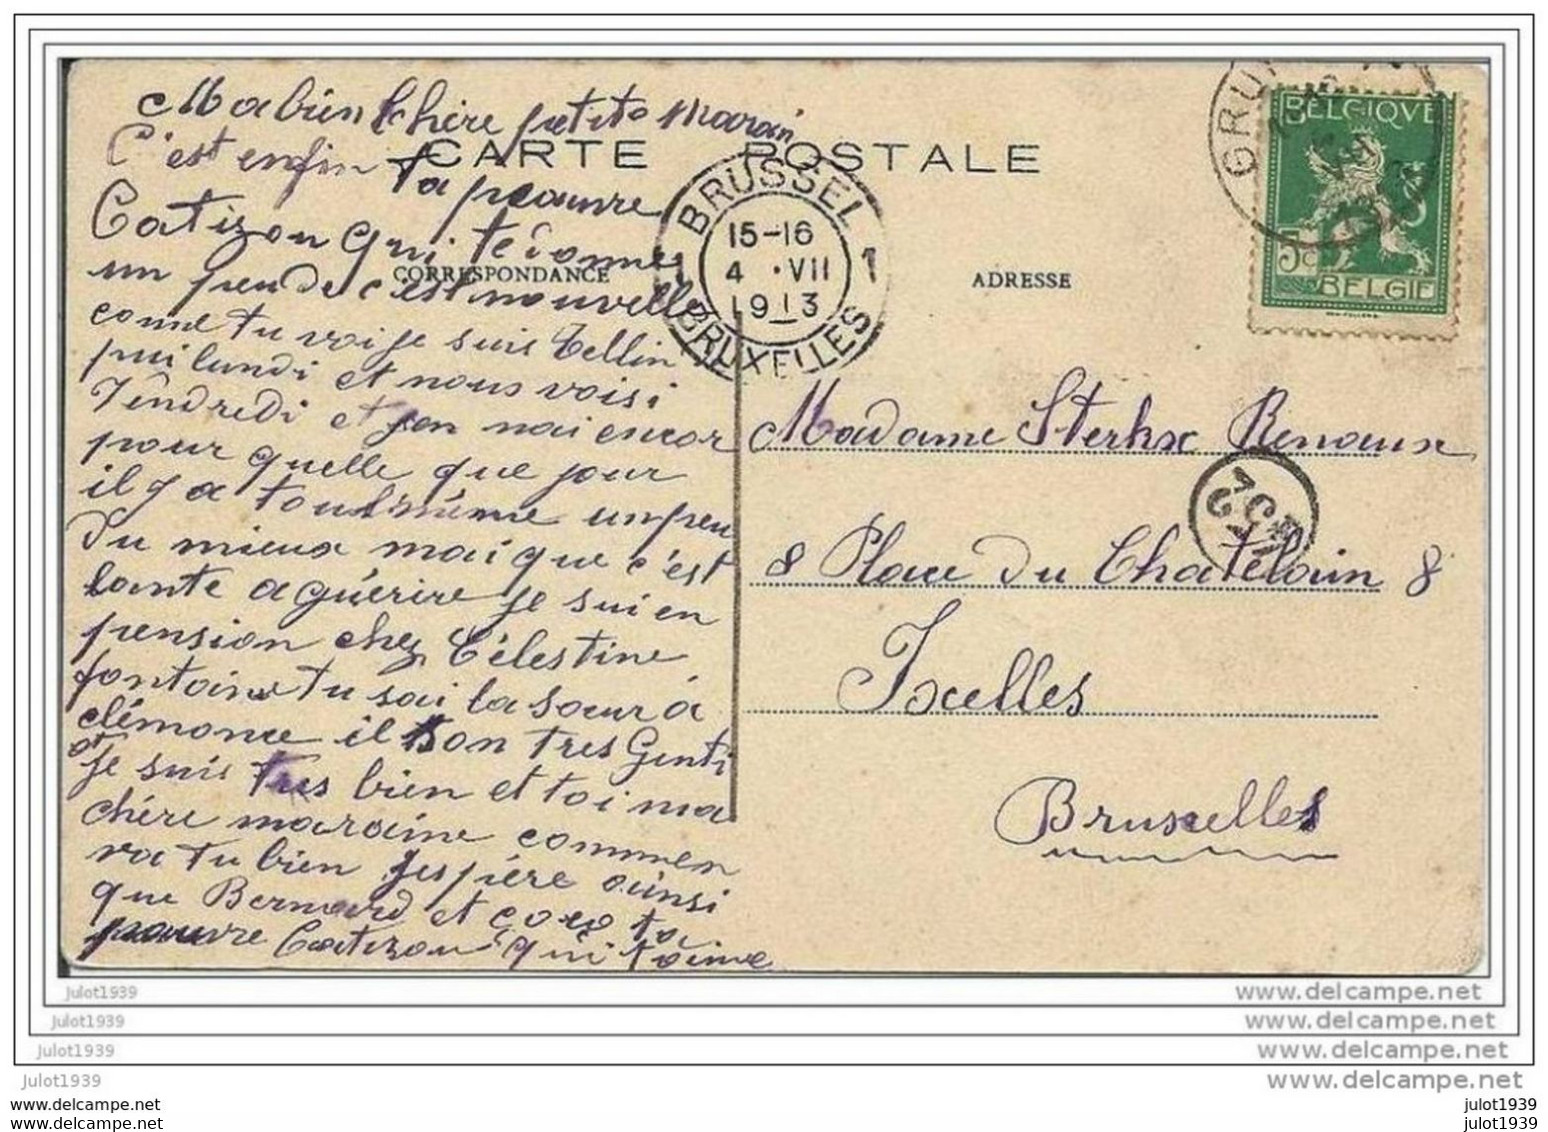 Ma bien Chère petite Marain
C'est enfin ta pauvre
Catizon qui te donne
un peu de c'est nouvelle
come tu voi je suis Tellin
pui lundi et nous voisi
Vendredi et jen nai encor
pour quelle que jour
il y a toutmême un peu
du mieux mai que c'est
lante a guérire je sui en
pension chez Célestine
fontaine tu sai la sœur à
clémence il son tres Genti
et je suis tres bien et toi ma
chére maraine commen
va tu bien jespére ainsi
que Bernard et coco ta
pauvre Catizon qui taime
CARTE POSTALE
CORRESPONDANCE
ADRESSE
BRUSSEL
15-16
4 · VII
1913
1 1
BRUXELLES
GRU
BELGIQUE
5
5c
BELGIE
Madame Sterkx Renaux
8 Place du Chatelain 8
Ixelles
Bruxelles
julot1939
www.delcampe.net
julot1939
www.delcampe.net
julot1939
www.delcampe.net
julot1939
www.delcampe.net
www.delcampe.net
julot1939
www.delcampe.net
julot1939